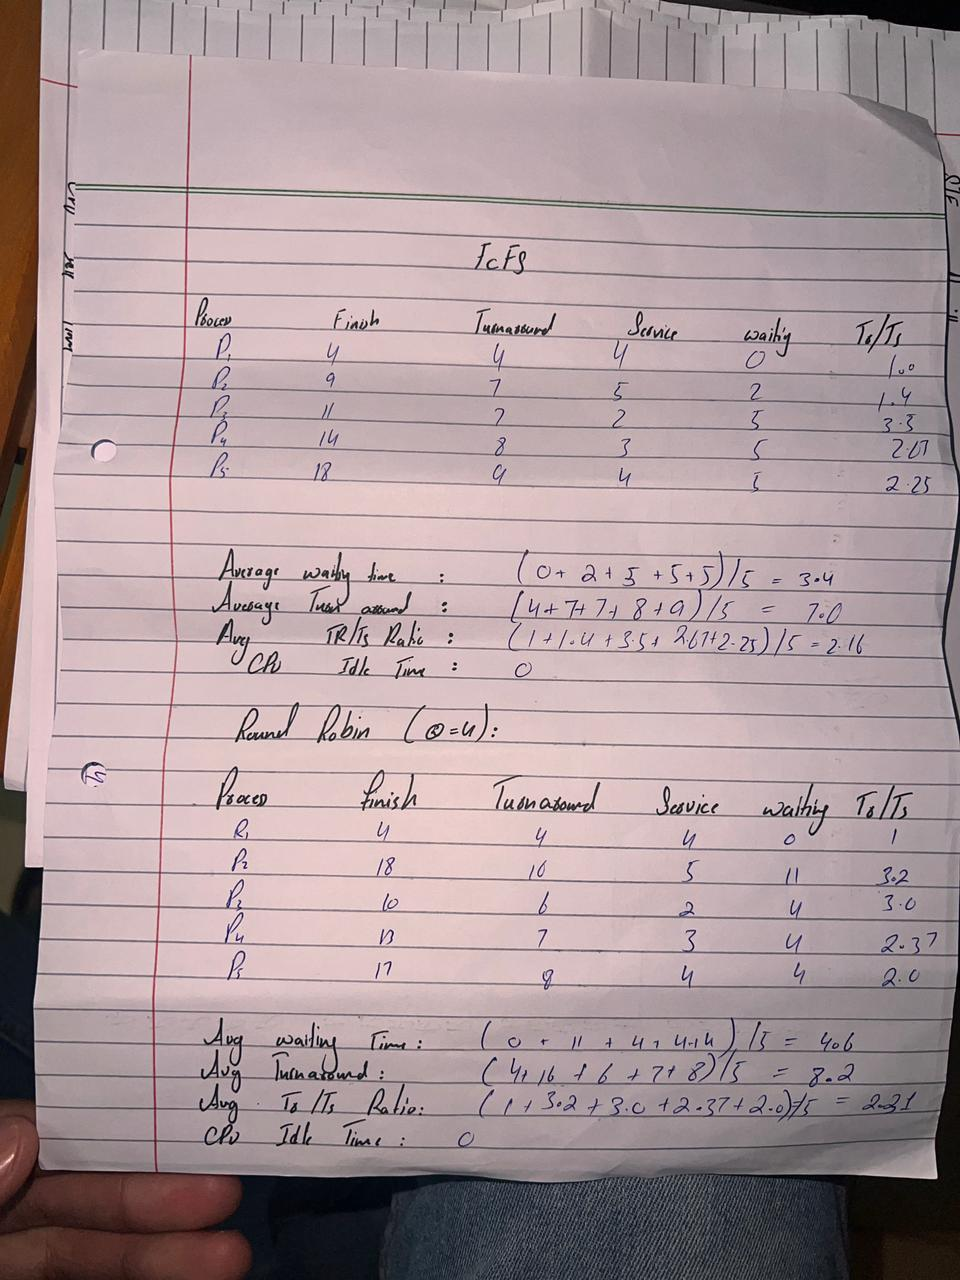 FCFS
Process Finish Turnaround Service waitig Tr/Ts
P1 4 4 4 0 1.0
P2 9 7 5 2 1.4
P3 11 7 2 5 3.5
P4 14 8 3 5 2.67
P5 18 9 4 5 2.25
Average waitig time : (0+ 2+5 +5+5)/5 = 3.4
Average Turn around : (4+7+7+8+9)/5 = 7.0
Avg TR/Ts Ratio : (1+1.4+3.5+2.67+2.25)/5 = 2.16
CPU Idle Time : 0
Round Robin (Q=4):
Process Finish Turnaround Service waiting Tr/Ts
P1 4 4 4 0 1
P2 18 16 5 11 3.2
P3 10 6 2 4 3.0
P4 13 7 3 4 2.37
P5 17 8 4 4 2.0
Avg waiting Time : (0 + 11 + 4+4+4)/5 = 4.6
Avg Turnaround : (4+16+6+7+8)/5 = 8.2
Avg Tr/Ts Ratio: (1+3.2+3.0+2.37+2.0)/5 = 2.31
CPU Idle Time : 0